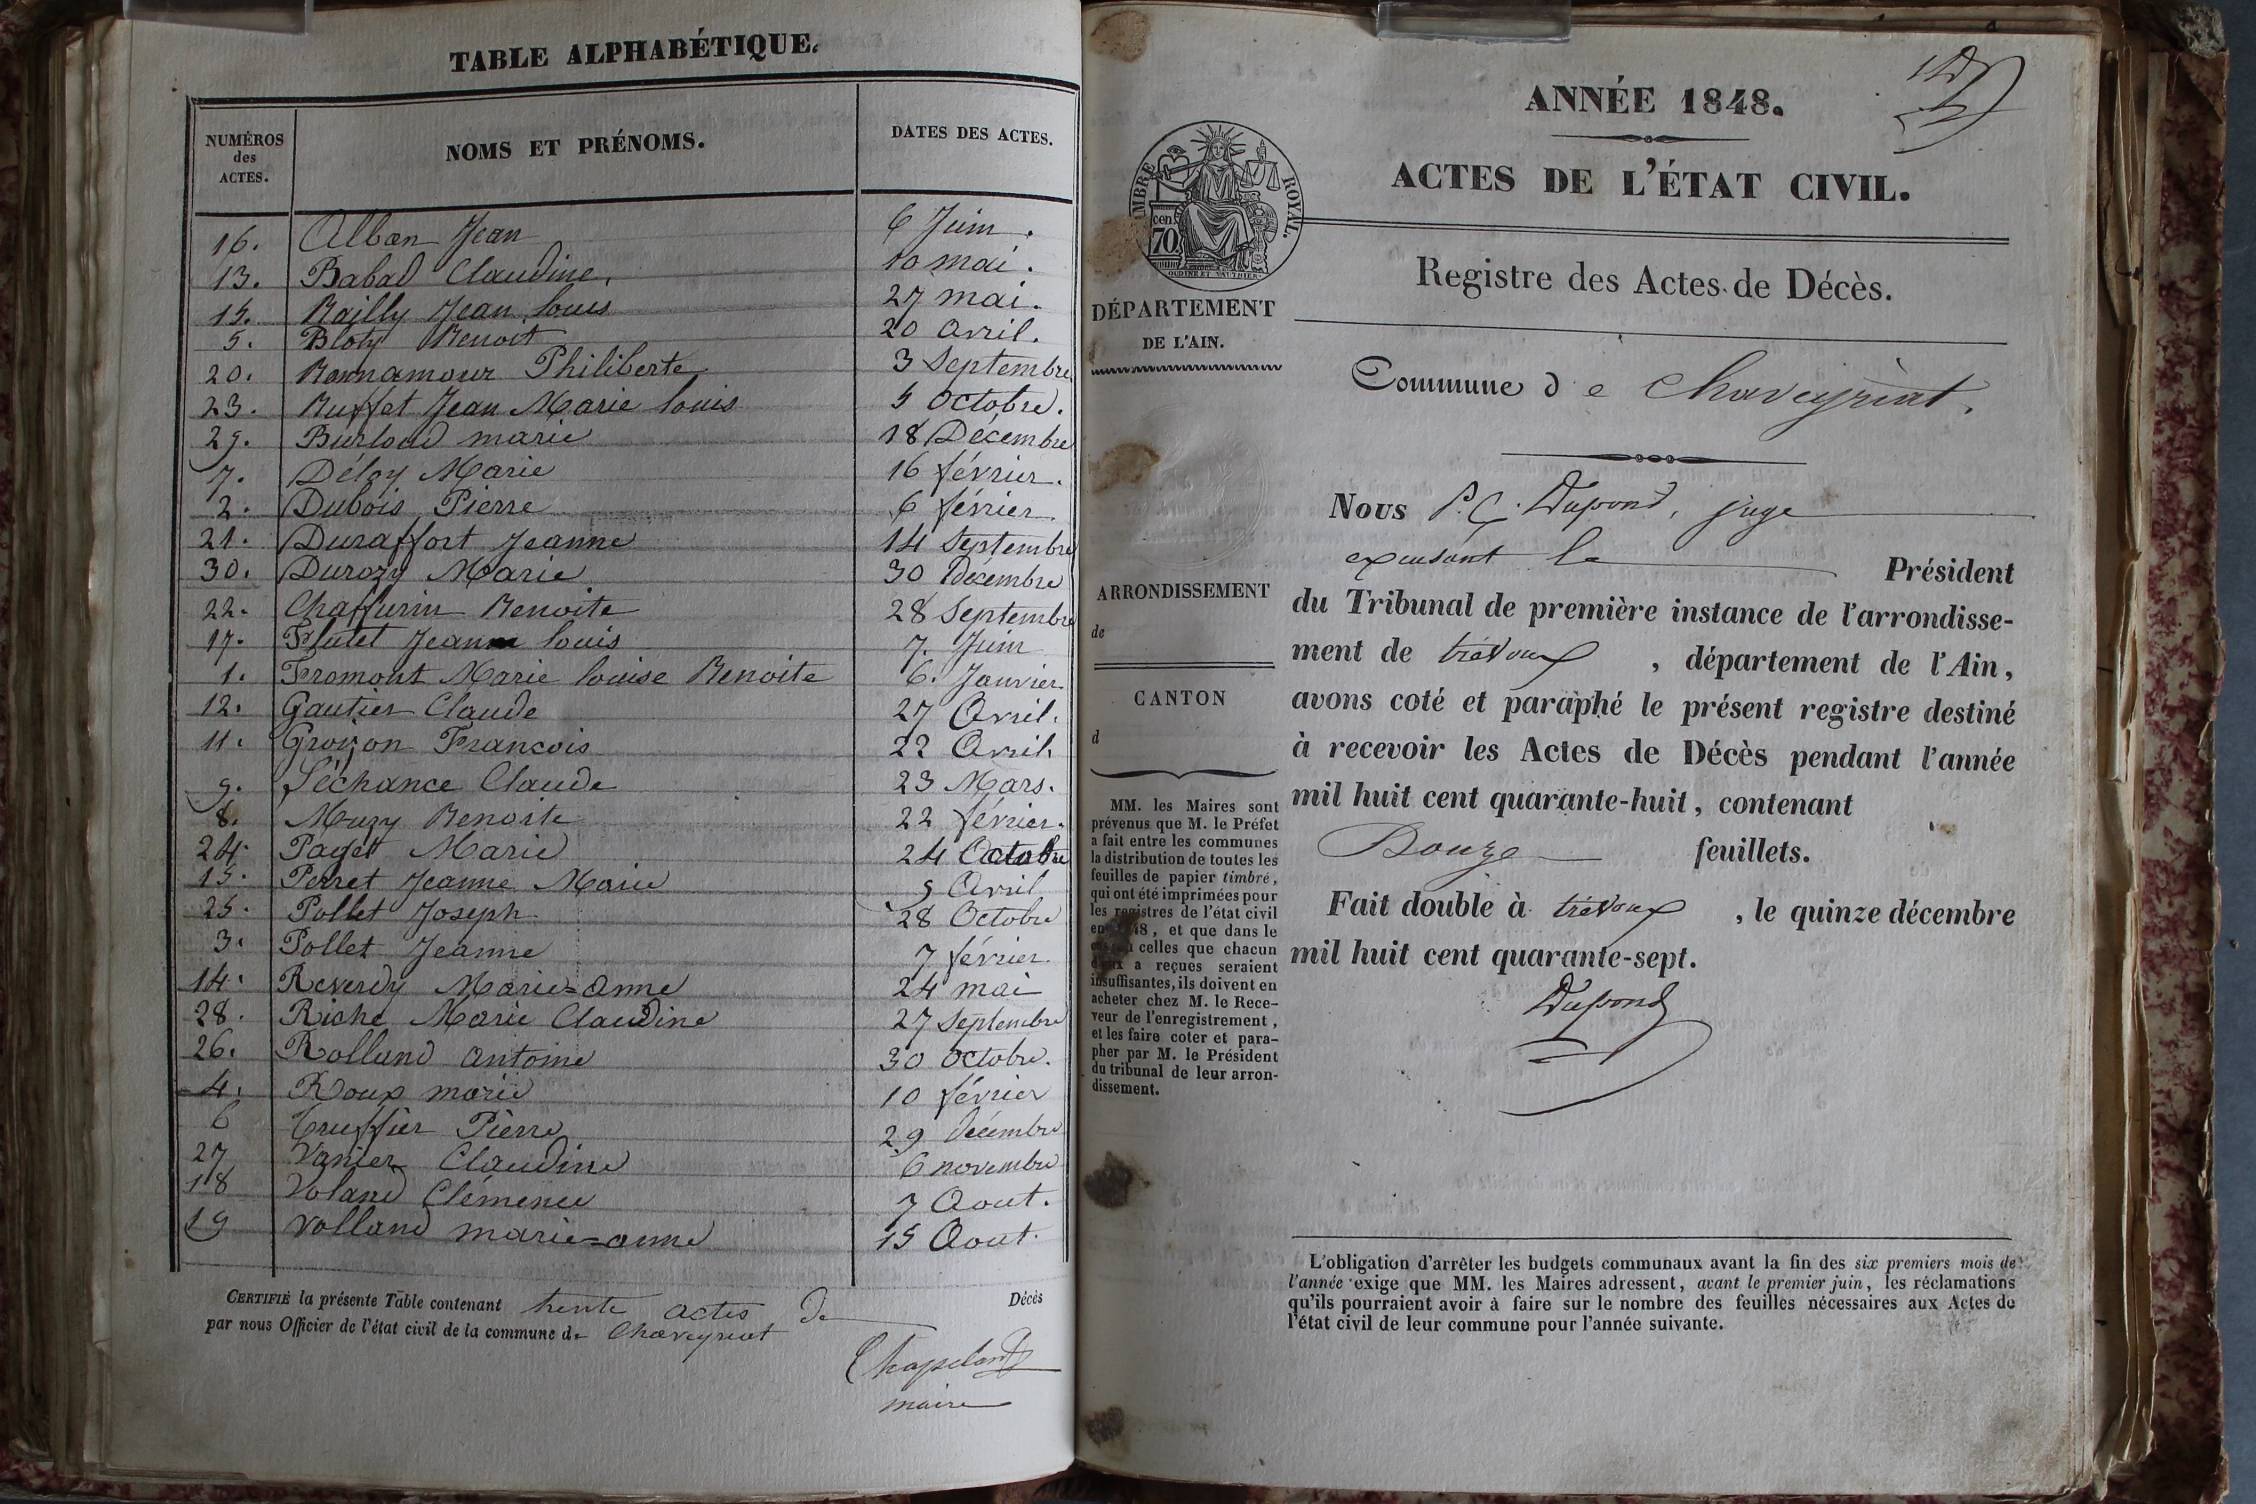 TABLE ALPHABÉTIQUE.
NUMÉROS des ACTES. NOMS ET PRÉNOMS. DATES DES ACTES.
16. Alban Jean 6 Juin.
13. Babad Claudine, 10 mai.
15. Bailly Jean louis 27 mai.
5. Bloty Benoit 20 Avril.
20. Bonnamour Philiberte 3 Septembre
23. Buffet Jean Marie louis 5 Octobre.
29. Burloud marie 18 Décembre
7. Déloy Marie 16 février.
2. Dubois Pierre 6 février.
21. Duraffort Jeanne 14 Septembre
30. Durozy Marie 30 Décembre
22. Chaffurin Benoite 28 Septembre
17. Flutet Jean louis 7. Juin
1. Fromont Marie louise Benoite 6. Janvier
12. Gautier Claude 27 Avril.
11. Groizon Francois 22 Avril
9. Léchance Claude 23 Mars.
8. Muzy Benoite 22 février.
24. Paget Marie 24 Octobre
15. Perret Jeanne Marie 9 Avril
25. Pollet Joseph 28 Octobre
3. Pollet Jeanne 7 février.
14. Reverdy Marie=anne 24 mai
28. Riche Marie Claudine 27 Septembre
26. Rolland antoine 30 Octobre.
4. Roux marie 10 février
6 Truffier Pierre 29 décembre
27 Vanier Claudine 6 novembre
18 Voland Clémence 7 Aout.
19 Volland marie=anne 15 Aout.
CERTIFIÉ la présente Table contenant trente actes de Décès
par nous Officier de l'état civil de la commune de Chaveyriat
Chapeland
maire
ANNÉE 1848.
ACTES DE L'ÉTAT CIVIL.
TIMBRE ROYAL.
70 cen
OUDINÉ ET VAUTHIER
Registre des Actes de Décès.
DÉPARTEMENT
DE L'AIN.
Commune de Chaveyriat.
ARRONDISSEMENT
de
CANTON
d
MM. les Maires sont
prévenus que M. le Préfet
a fait entre les communes
la distribution de toutes les
feuilles de papier timbré,
qui ont été imprimées pour
les registres de l'état civil
en 1848, et que dans le
cas où celles que chacun
d'eux a reçues seraient
insuffisantes, ils doivent en
acheter chez M. le Rece-
veur de l'enregistrement,
et les faire coter et para-
pher par M. le Président
du tribunal de leur arron-
dissement.
Nous P. C. Dupond, juge
excusant le Président
du Tribunal de première instance de l'arrondisse-
ment de trévoux, département de l'Ain,
avons coté et paraphé le présent registre destiné
à recevoir les Actes de Décès pendant l'année
mil huit cent quarante-huit, contenant
Douze feuillets.
Fait double à trévoux, le quinze décembre
mil huit cent quarante-sept.
Dupond
L'obligation d'arrêter les budgets communaux avant la fin des six premiers mois de
l'année exige que MM. les Maires adressent, avant le premier juin, les réclamations
qu'ils pourraient avoir à faire sur le nombre des feuilles nécessaires aux Actes de
l'état civil de leur commune pour l'année suivante.